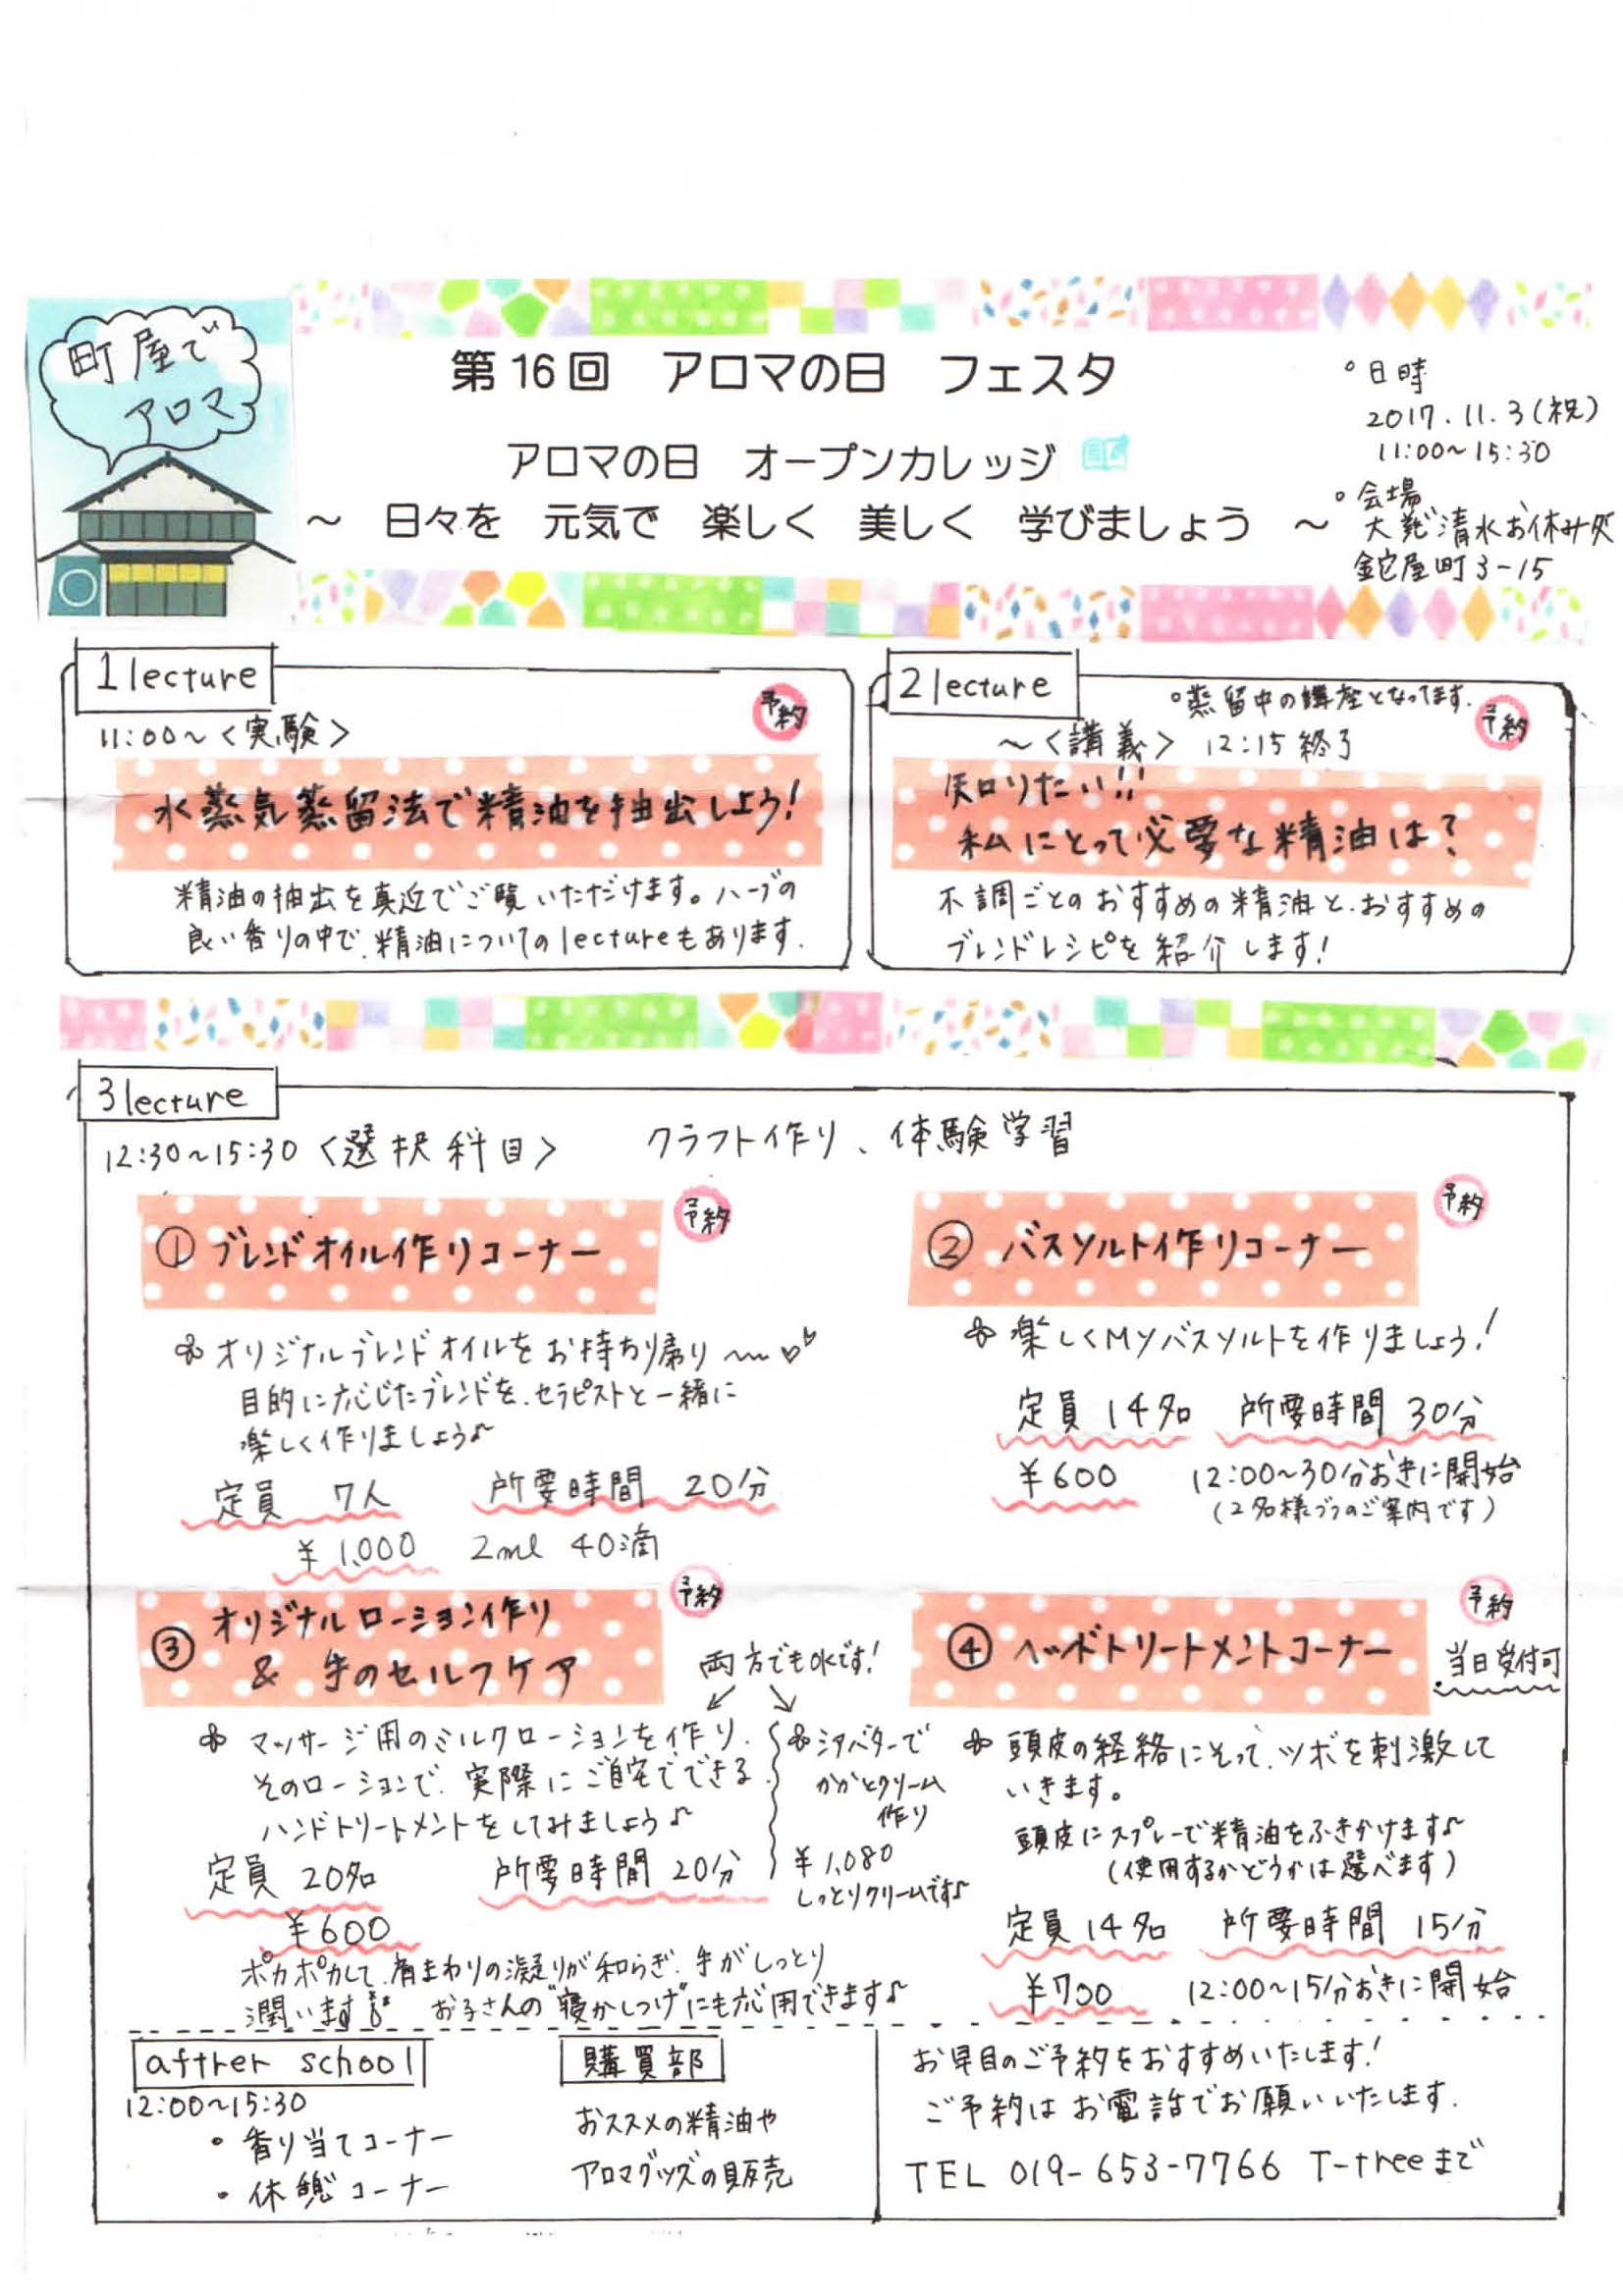 町屋で
アロマ
第16回 アロマの日 フェスタ
アロマの日 オープンカレッジ
～ 日々を 元気で 楽しく 美しく 学びましょう ～
°日時
2017.11.3(祝)
11:00～15:30
°会場
大慈清水お休み処
鉈屋町3-15
1 lecture
予約
11:00～〈実験〉
水蒸気蒸留法で精油を抽出しよう!
精油の抽出を真近でご覧いただけます。ハーブの
良い香りの中で、精油についてのlectureもあります.
2 lecture
°蒸留中の講座となってます.
予約
～〈講義〉 12:15終了
知りたい!!
私にとって必要な精油は?
不調ごとのおすすめの精油と、おすすめの
ブレンドレシピを紹介します!
3 lecture
12:30～15:30〈選択科目〉 クラフト作り、体験学習
予約
① ブレンドオイル作りコーナー
オリジナルブレンドオイルをお持ち帰り～♡♡
目的に応じたブレンドを、セラピストと一緒に
楽しく作りましょう♪
定員 7人 所要時間 20分
¥1,000 2ml 40滴
予約
② バスソルト作りコーナー
楽しくMyバスソルトを作りましょう!
定員14名 所要時間 30分
¥600 12:00～30分おきに開始
(2名様づつのご案内です)
予約
③ オリジナルローション作り
& 手のセルフケア
両方でもokです!
マッサージ用のミルクローションを作り、
そのローションで、実際にご自宅でできる
ハンドトリートメントをしてみましょう♪
定員 20名 所要時間 20分
¥600
シアバターで
かかとクリーム
作り
¥1,080
しっとりクリームです♪
ポカポカして、肩まわりの凝りが和らぎ、手がしっとり
潤います お子さんの"寝かしつけ"にも応用できます♪
予約
④ ヘッドトリートメントコーナー
当日受付可
頭皮の経絡にそって、ツボを刺激して
いきます。
頭皮にスプレーで精油をふきかけます♪
(使用するかどうかは選べます)
定員14名 所要時間 15分
¥700 12:00～15分おきに開始
aftrer school
12:00～15:30
・香り当てコーナー
・休憩コーナー
購買部
おススメの精油や
アロマグッズの販売
お早目のご予約をおすすめいたします!
ご予約はお電話でお願いいたします.
TEL 019-653-7766 T-treeまで